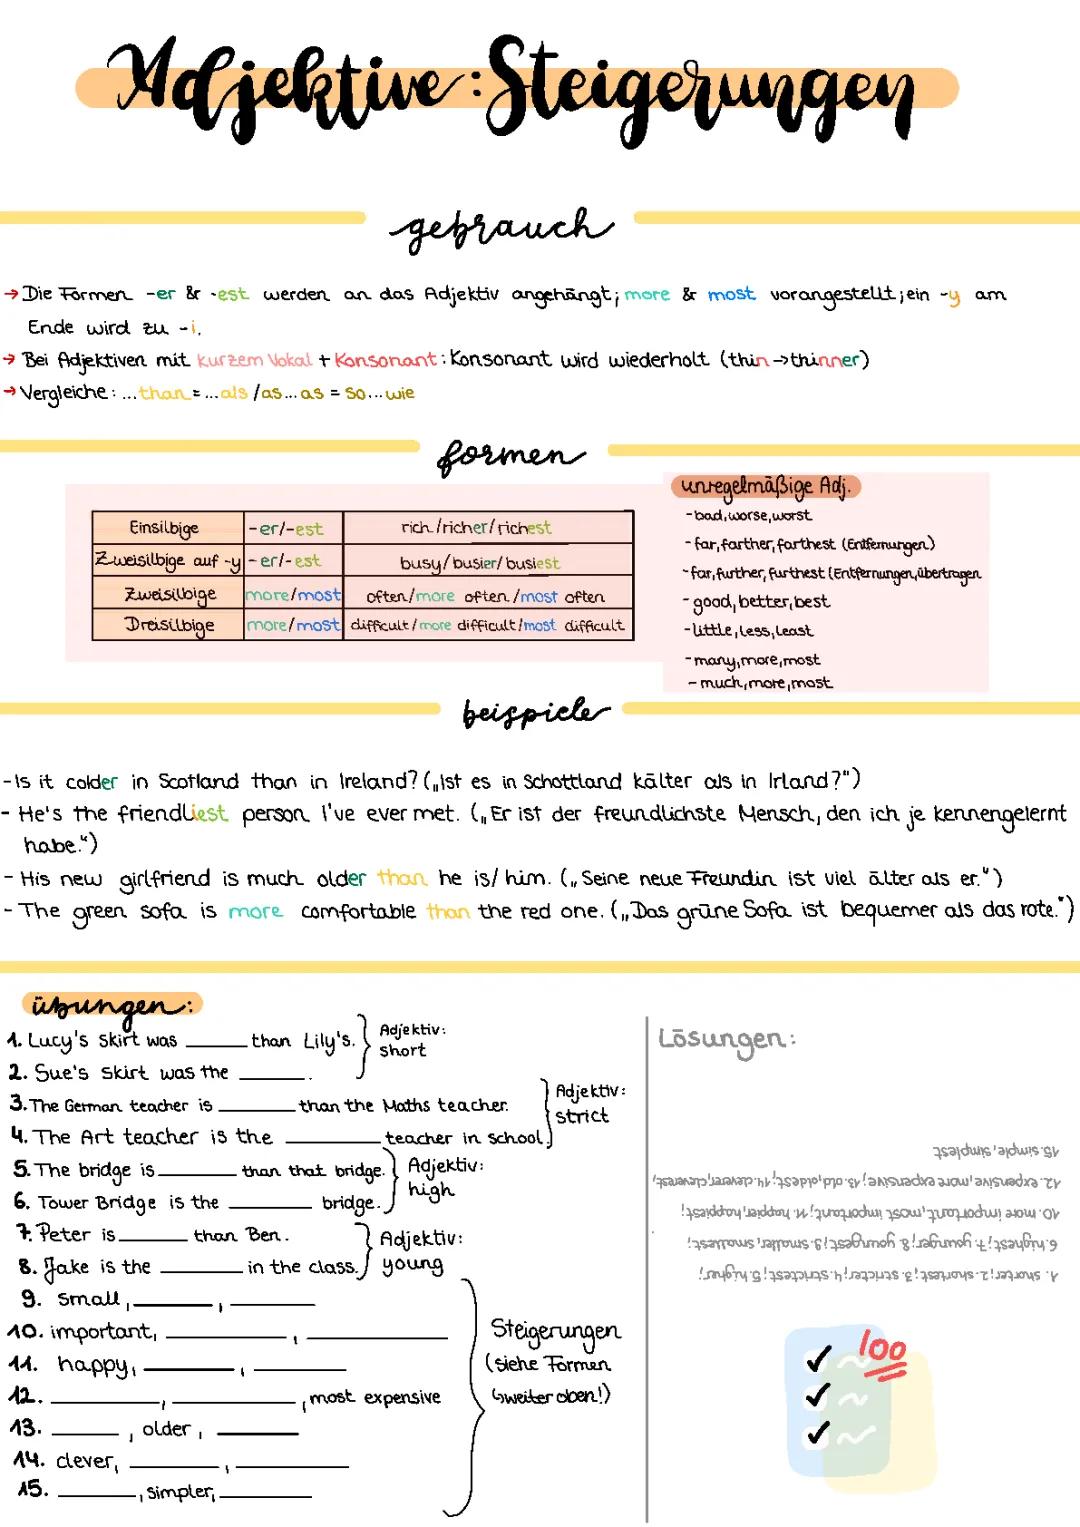 Adjektive: Steigerungen
gebrauch
→ Die Formen -er & -est werden an das Adjektiv angehängt; more & most vorangestellt; ein -y am
Ende wird zu -i.
→ Bei Adjektiven mit kurzem Vokal + Konsonant: Konsonant wird wiederholt (thin → thinner)
→ Vergleiche: ...than = ...als / as...as = so...wie
formen
Einsilbige -er/-est rich/richer/richest
Zweisilbige auf -y -er/-est busy/busier/busiest
Zweisilbige more/most often/more often/most often
Dreisilbige more/most difficult/more difficult/most difficult
unregelmäßige Adj.
- bad, worse, worst
- far, farther, farthest (Entfernungen)
- far, further, furthest (Entfernungen, übertragen
- good, better, best
- little, less, least
- many, more, most
- much, more, most
beispiele
- Is it colder in Scotland than in Ireland? („Ist es in Schottland kälter als in Irland?")
- He's the friendliest person I've ever met. („Er ist der freundlichste Mensch, den ich je kennengelernt
habe.")
- His new girlfriend is much older than he is/him. („Seine neue Freundin ist viel älter als er.")
- The green sofa is more comfortable than the red one. („Das grüne Sofa ist bequemer als das rote.")
übungen:
1. Lucy's skirt was ______ than Lily's.
2. Sue's skirt was the ______.
Adjektiv:
short
3. The German teacher is ______ than the Maths teacher.
4. The Art teacher is the ______ teacher in school.
Adjektiv:
strict
5. The bridge is ______ than that bridge.
6. Tower Bridge is the ______ bridge.
Adjektiv:
high
7. Peter is ______ than Ben.
8. Jake is the ______ in the class.
Adjektiv:
young
9. small, ______, ______
10. important, ______, ______
11. happy, ______, ______
12. ______, ______, most expensive
13. ______, older, ______
14. clever, ______, ______
15. ______, simpler, ______
Steigerungen
(siehe Formen
↳weiter oben!)
Lösungen:
1. shorter; 2. shortest; 3. stricter; 4. strictest; 5. higher;
6. highest; 7. younger; 8. youngest; 9. smaller, smallest;
10. more important, most important; 11. happier, happiest;
12. expensive, more expensive; 13. old, oldest; 14. cleverer, cleverest;
15. simple, simplest
100